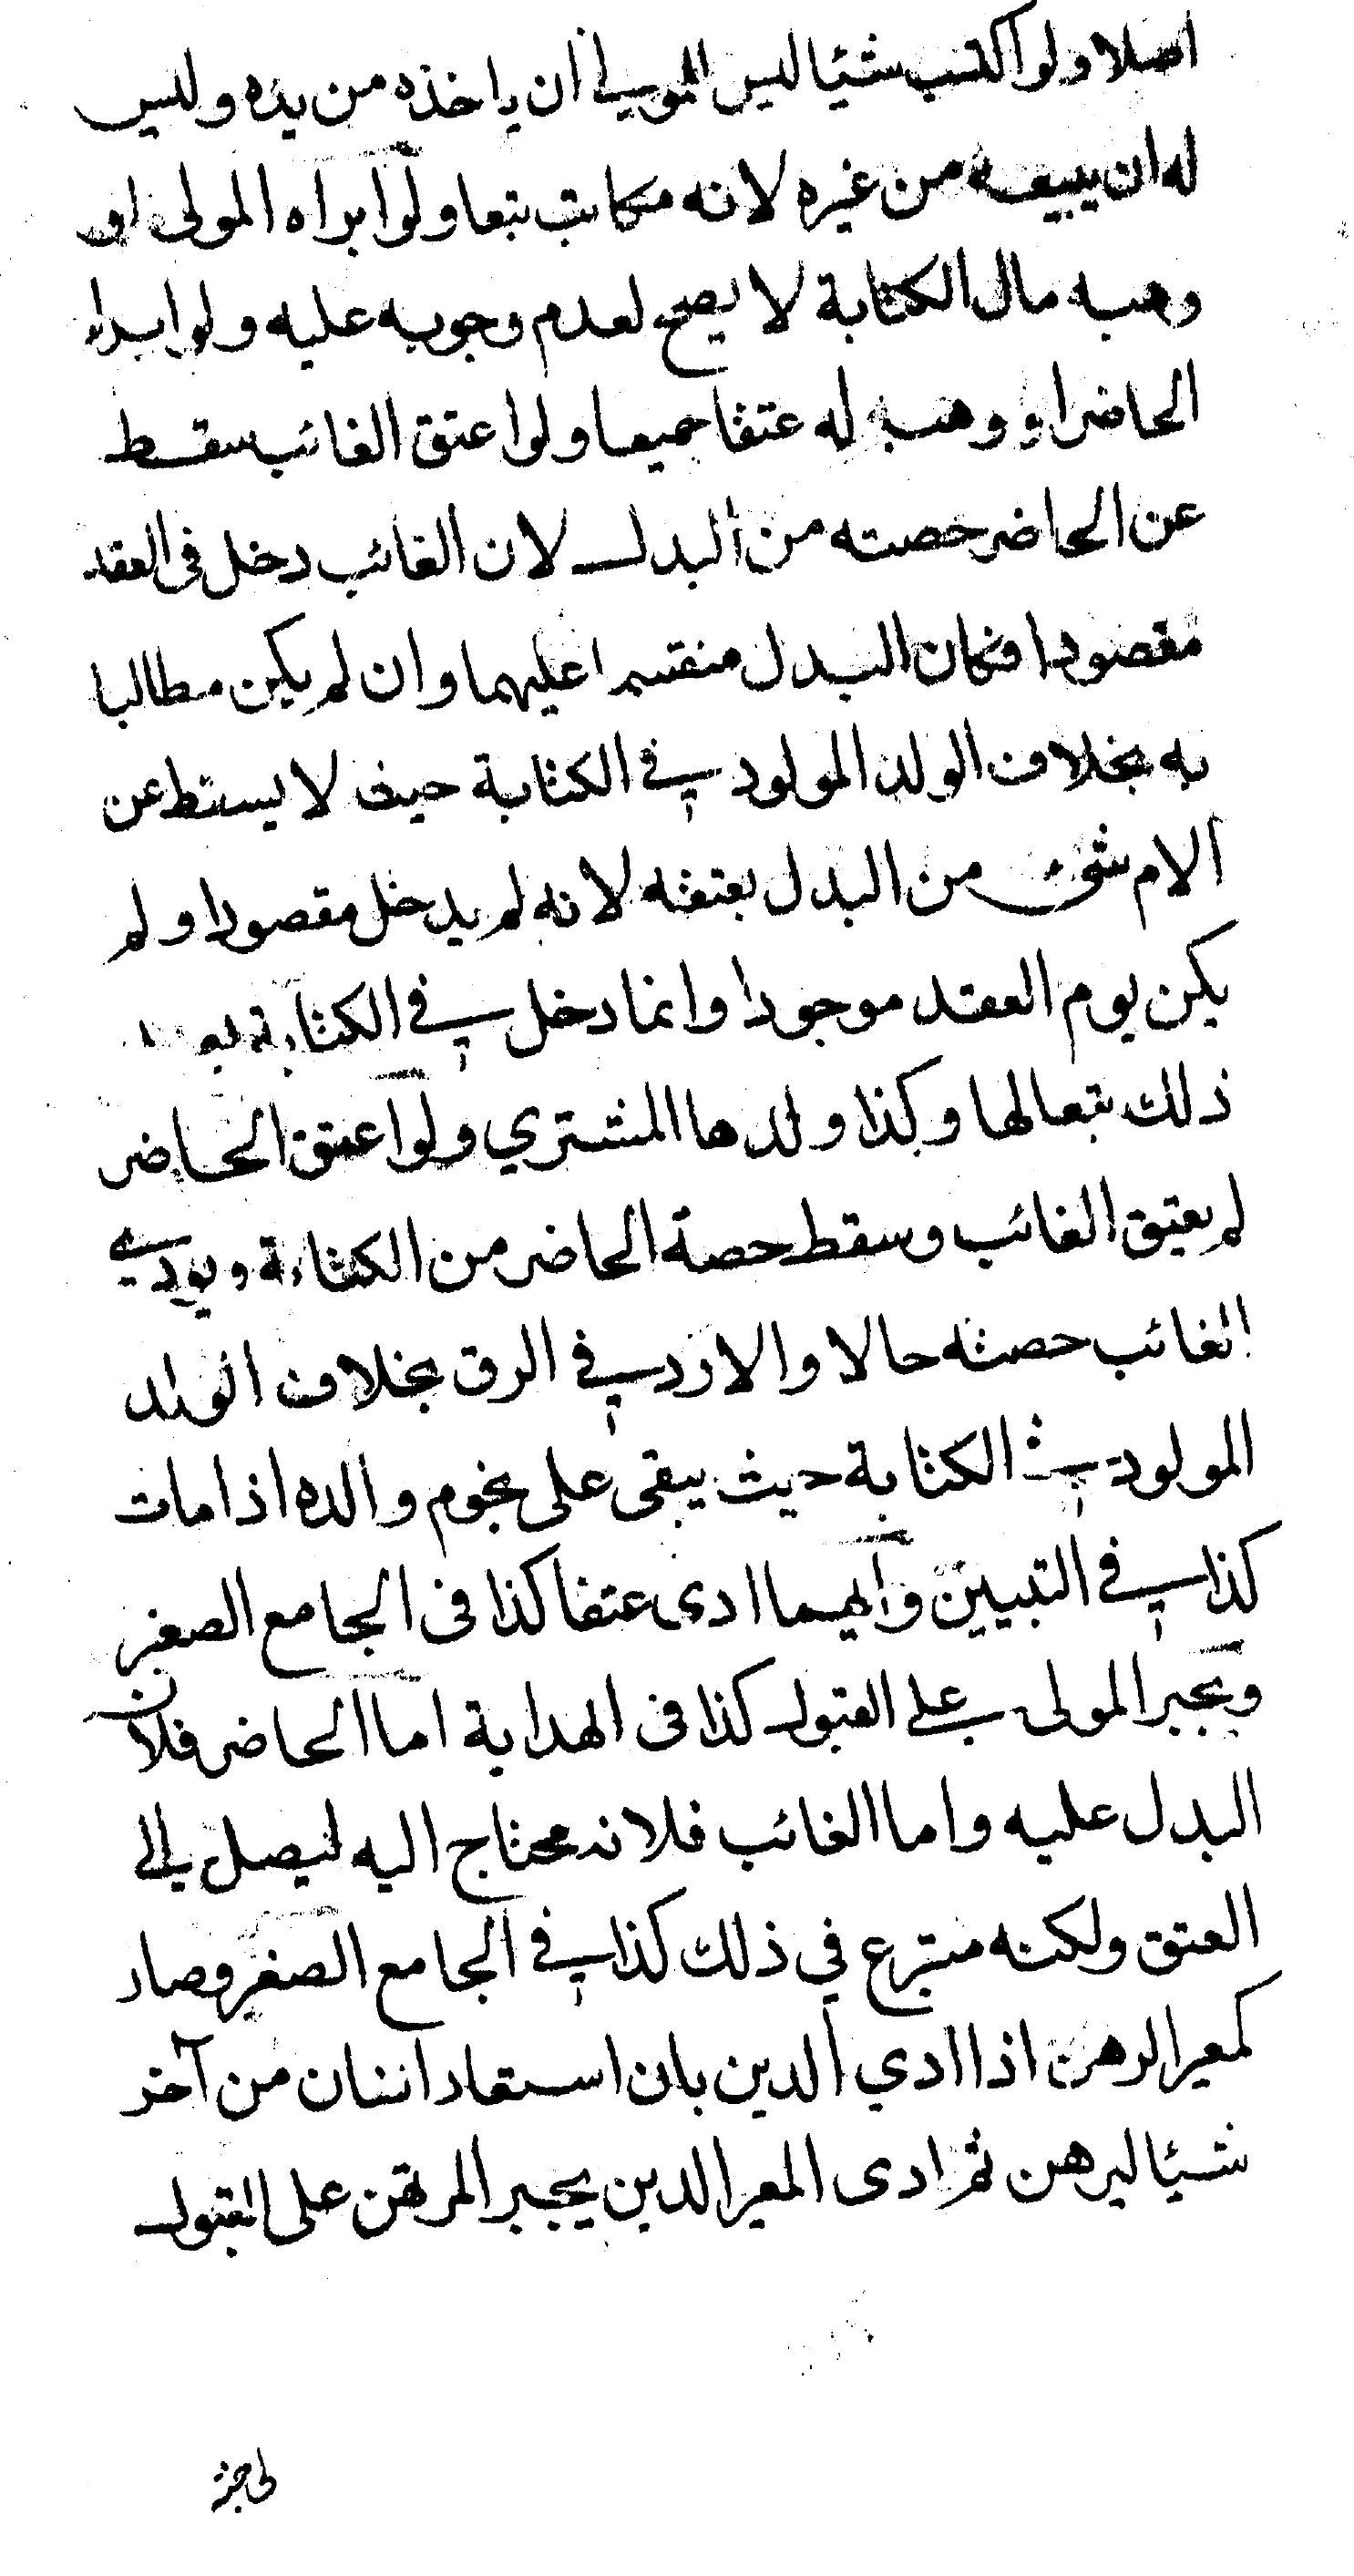 اصلا ولو اكتسب شيئا ليس للمولى ان ياخذه من يده وليس
له ان يبيعه من غيره لانه مكاتب تبعا ولو ابراه المولى او
وهبه مال الكتابة لا يصح لعدم وجوبه عليه ولو ابراء
الحاضر او وهبه له عتقا جميعا ولو اعتق الغائب سقط
عن الحاضر حصته من البدل لان الغائب دخل فى العقد
مقصودا فكان البدل منقسما عليهما وان لم يكن مطالبا
به بخلاف الولد المولود في الكتابة حيث لا يسقط عن
الام شئ من البدل بعتقه لانه لم يدخل مقصودا ولم
يكن يوم العقد موجودا وانما دخل في الكتابة
ذلك تبعا لها وكذا ولدها المشتري ولو اعتق الحاضر
لم يعتق الغائب وسقط حصة الحاضر من الكتابة ويودي
الغائب حصته حالا والا رد في الرق بخلاف الولد
المولود في الكتابة حيث يبقى على نجوم والده اذا مات
كذا في التبيين وايهما ادى عتقا كذا فى الجامع الصغير
ويجبر المولى على القبول كذا فى الهداية اما الحاضر فلان
البدل عليه واما الغائب فلانه محتاج اليه ليصل الى
العتق ولكنه متبرع في ذلك كذا في الجامع الصغير وصار
كمعير الرهن اذا ادي الدين بان استعار انسان من آخر
شيئا ليرهن ثم ادى المعير الدين يجبر المرتهن على القبول